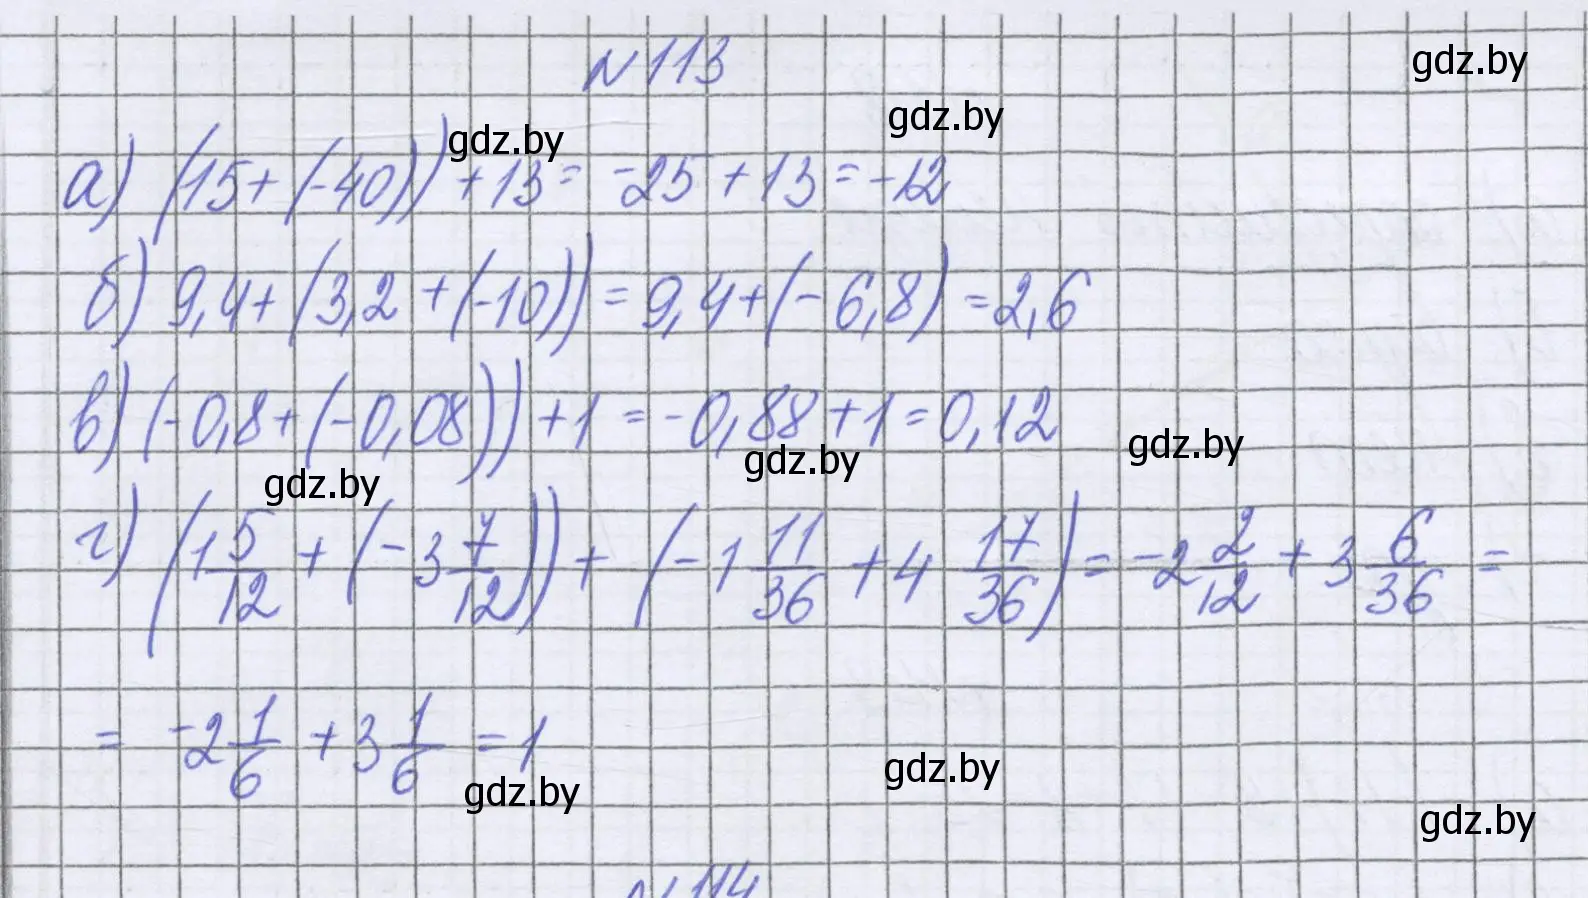 №113
gdz.by
gdz.by
gdz.by
а) (15+(-40))+13= -25+13=-12
б) 9,4+(3,2+(-10))=9,4+(-6,8)=2,6
в) (-0,8+(-0,08))+1=-0,88+1=0,12
gdz.by
gdz.by
gdz.by
г) (1 5/12 + (-3 7/12)) + (-1 11/36 + 4 17/36) = -2 2/12 + 3 6/36 =
= -2 1/6 + 3 1/6 = 1
gdz.by
gdz.by
gdz.by
№114